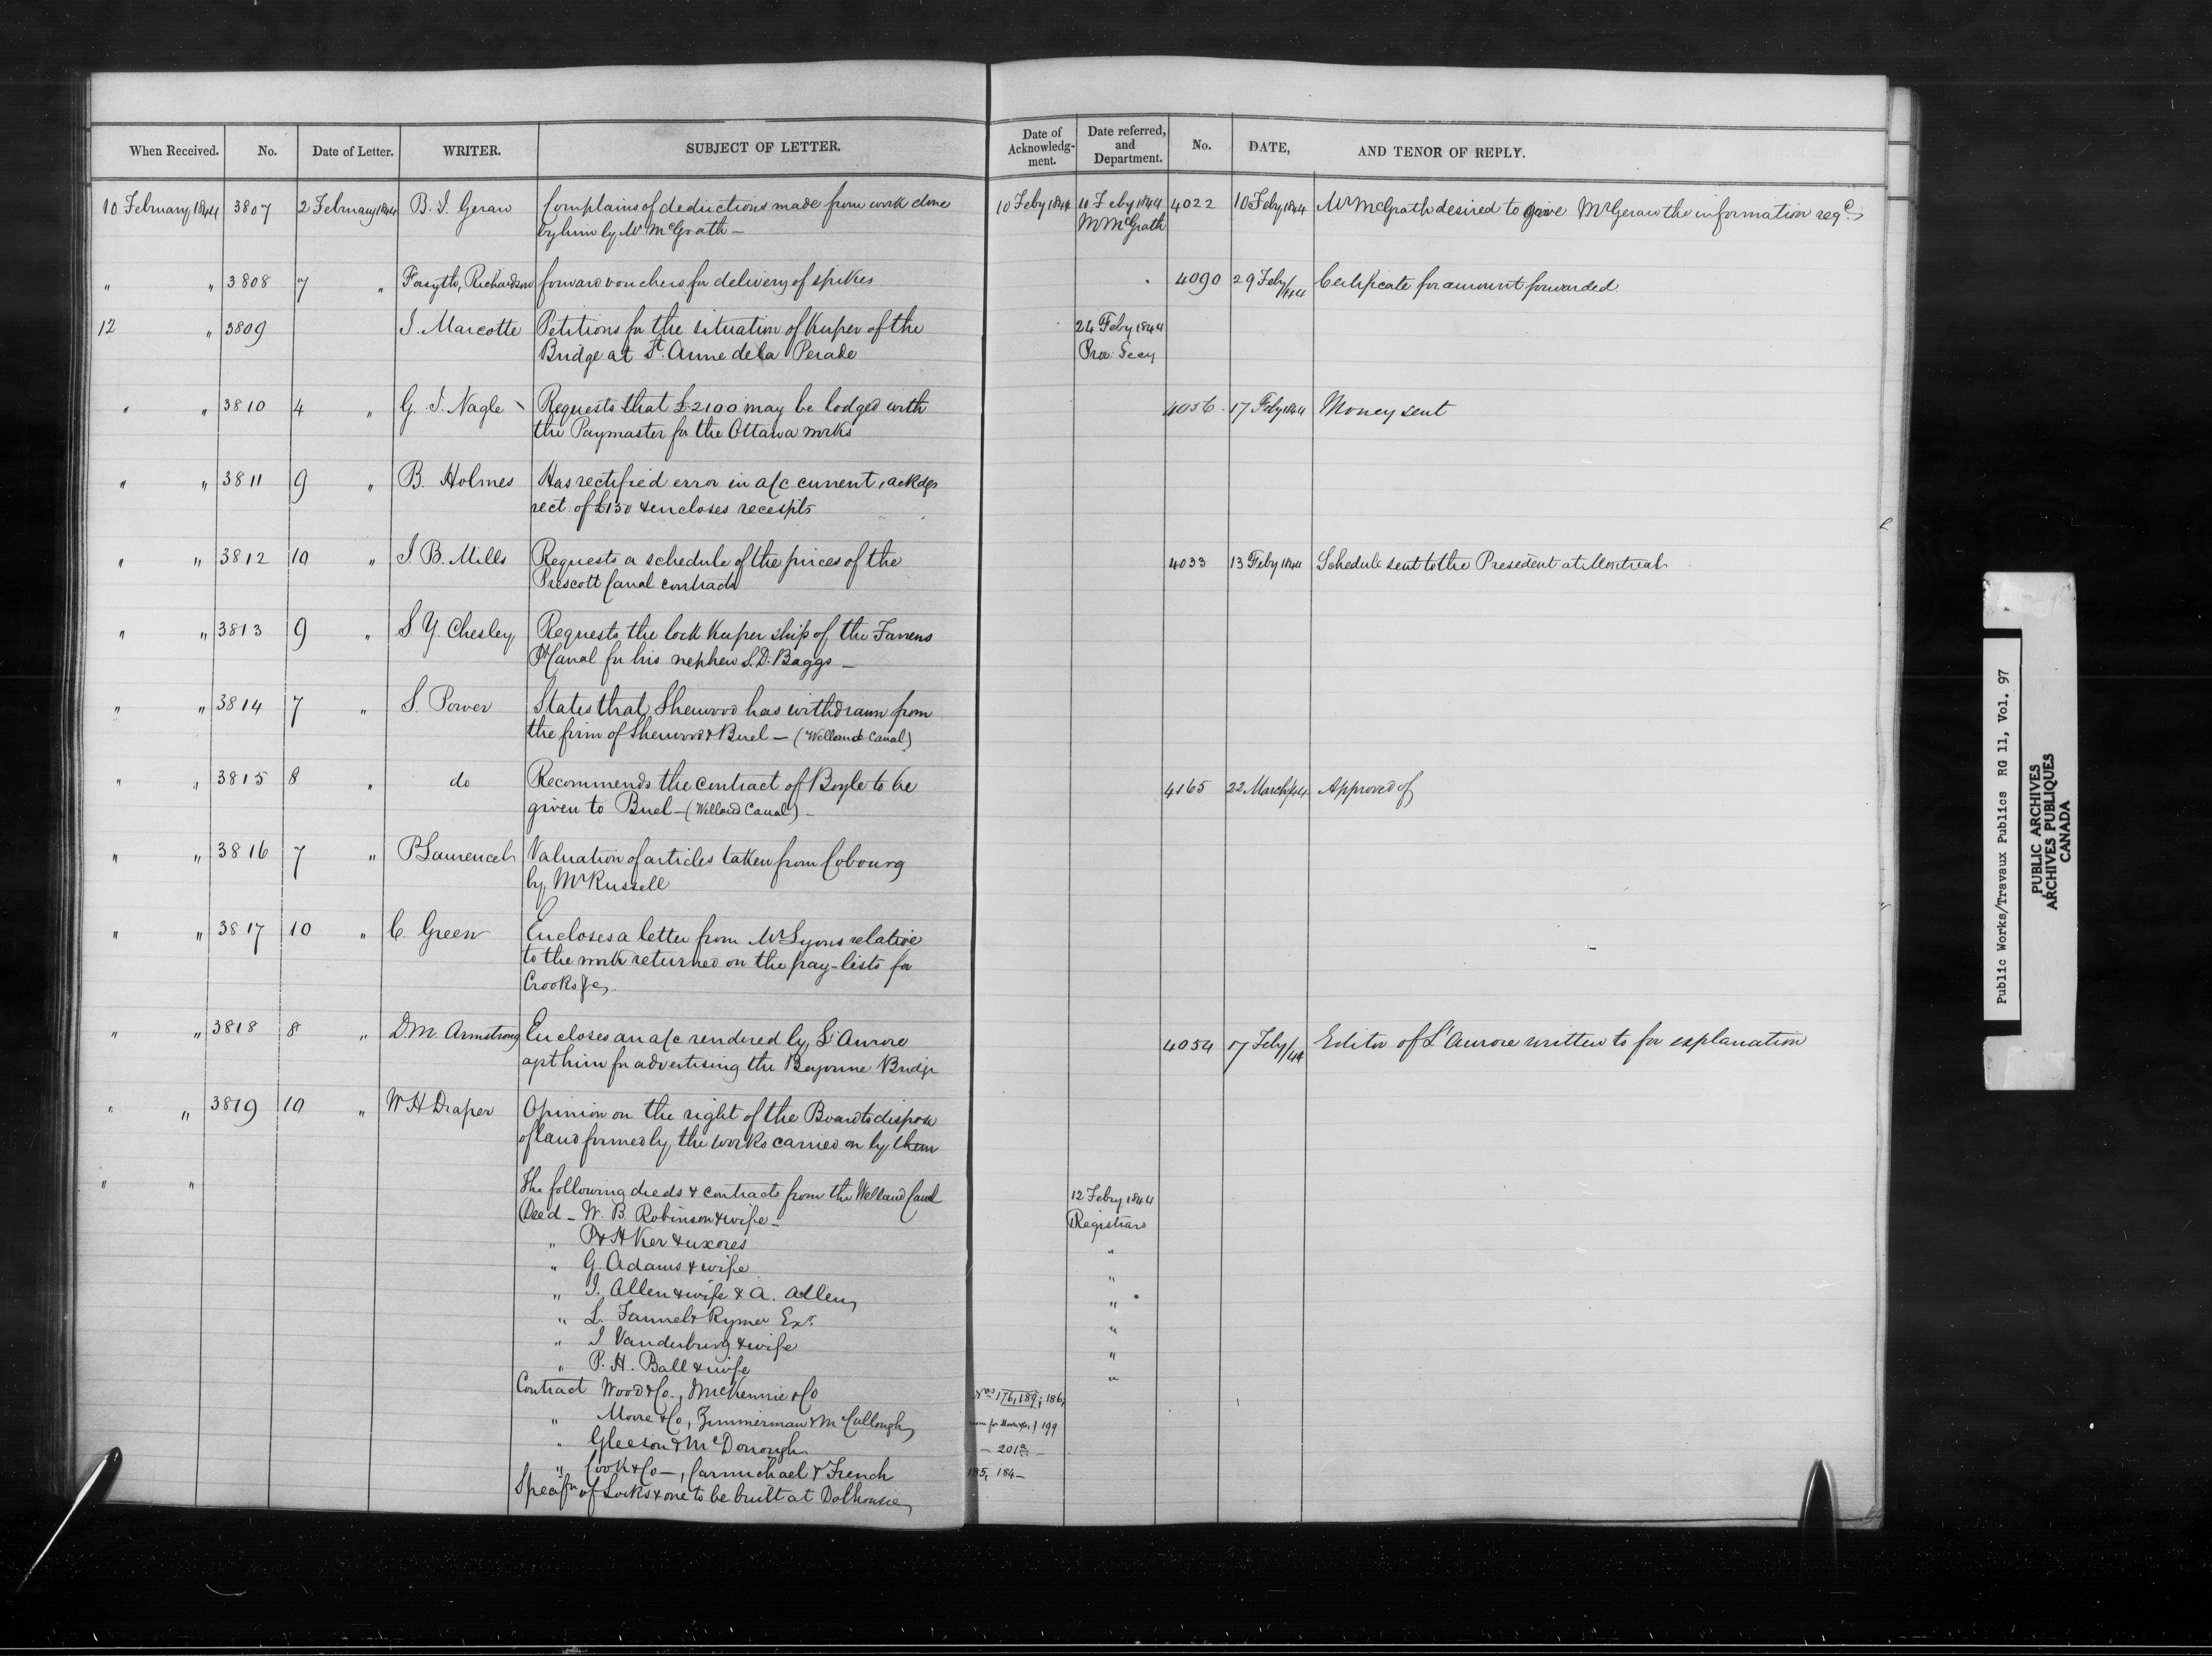 When Received. No. Date of Letter. WRITER. SUBJECT OF LETTER. Date of Acknowledg-ment. Date referred, and Department. No. DATE, AND TENOR OF REPLY.
10 February 1844 3807 2 February 1844 B. I. Geraw Complains of deductions made from work done 10 Feby 1844 10 Feby 1844 4022 10 Feby 1844 Mr McGrath desired to give Mr Geraw the information reqd
by him by Mr McGrath — Mr McGrath
" " 3808 7 " Forsyth, Richardson forward vouchers for delivery of spikes 4090 29 Feby/44 Certificate for amount forwarded.
12 " 3809 I. Marcotte Petitions for the situation of Keeper of the 24 Feby 1844
Bridge at St. Anne de la Perade Prov: Secy
" " 3810 4 " G. I. Nagle Requests that £2100 may be lodged with 4056 17 Feby 1844 Money sent
the Paymaster for the Ottawa works
" " 3811 9 " B. Holmes Has rectified error in a/c current, ackdgs
rect. of £150 & encloses receipts
" " 3812 10 " I B. Mills Requests a schedule of the prices of the 4033 13 Feby 1844 Schedule sent to the President at Montreal
Prescott Canal contracts
" " 3813 9 " S Y. Chesley Requests the lock keeper ship of the Farrens
Pt Canal for his nephew S. D. Baggs —
" " 3814 7 " S. Power States that Sherwood has withdrawn from
the firm of Sherwood & Buel — (Welland Canal)
" " 3815 8 " do Recommends the contract of Boyle to be 4165 22 March/44 Approved of
given to Buel — (Welland Canal) —
" " 3816 7 " P Laurencel Valuation of articles taken from Cobourg
by Mr Russell
" " 3817 10 " C. Green Encloses a letter from Mr Lyons relative
to the work returned on the pay-lists for
Crooks &c,
" " 3818 8 " D. M. Armstrong Encloses an a/c rendered by L'Aurore 4054 17 Feby/44 Editor of L'Aurore written to for explanation
agst him for advertising the Bayonne Bridge
" " 3819 10 " W H Draper Opinion on the right of the Board to dispose
of land formed by the works carried on by them
" " The following deeds & contracts from the Welland Canal 12 Feby 1844
Deed — W. B. Robinson & wife — Registrar
" P & H Ker & uxores "
" G. Adams & wife "
" I. Allen & wife & A. Allen "
" L. & Rymer Exr. "
" I Vanderburg & wife "
" P. H. Ball & wife "
Contract Wood & Co., McKennie & Co Nos 176, 189; 186,
" Moore & Co, Zimmerman & McCullough 199
" Gleeson & McDonough — 201a —
" Cook & Co —, Carmichael & French 185, 184 —
Specifn of Locks & one to be built at Dalhousie
Public Works/Travaux Publics RG 11, Vol. 97
PUBLIC ARCHIVES
ARCHIVES PUBLIQUES
CANADA